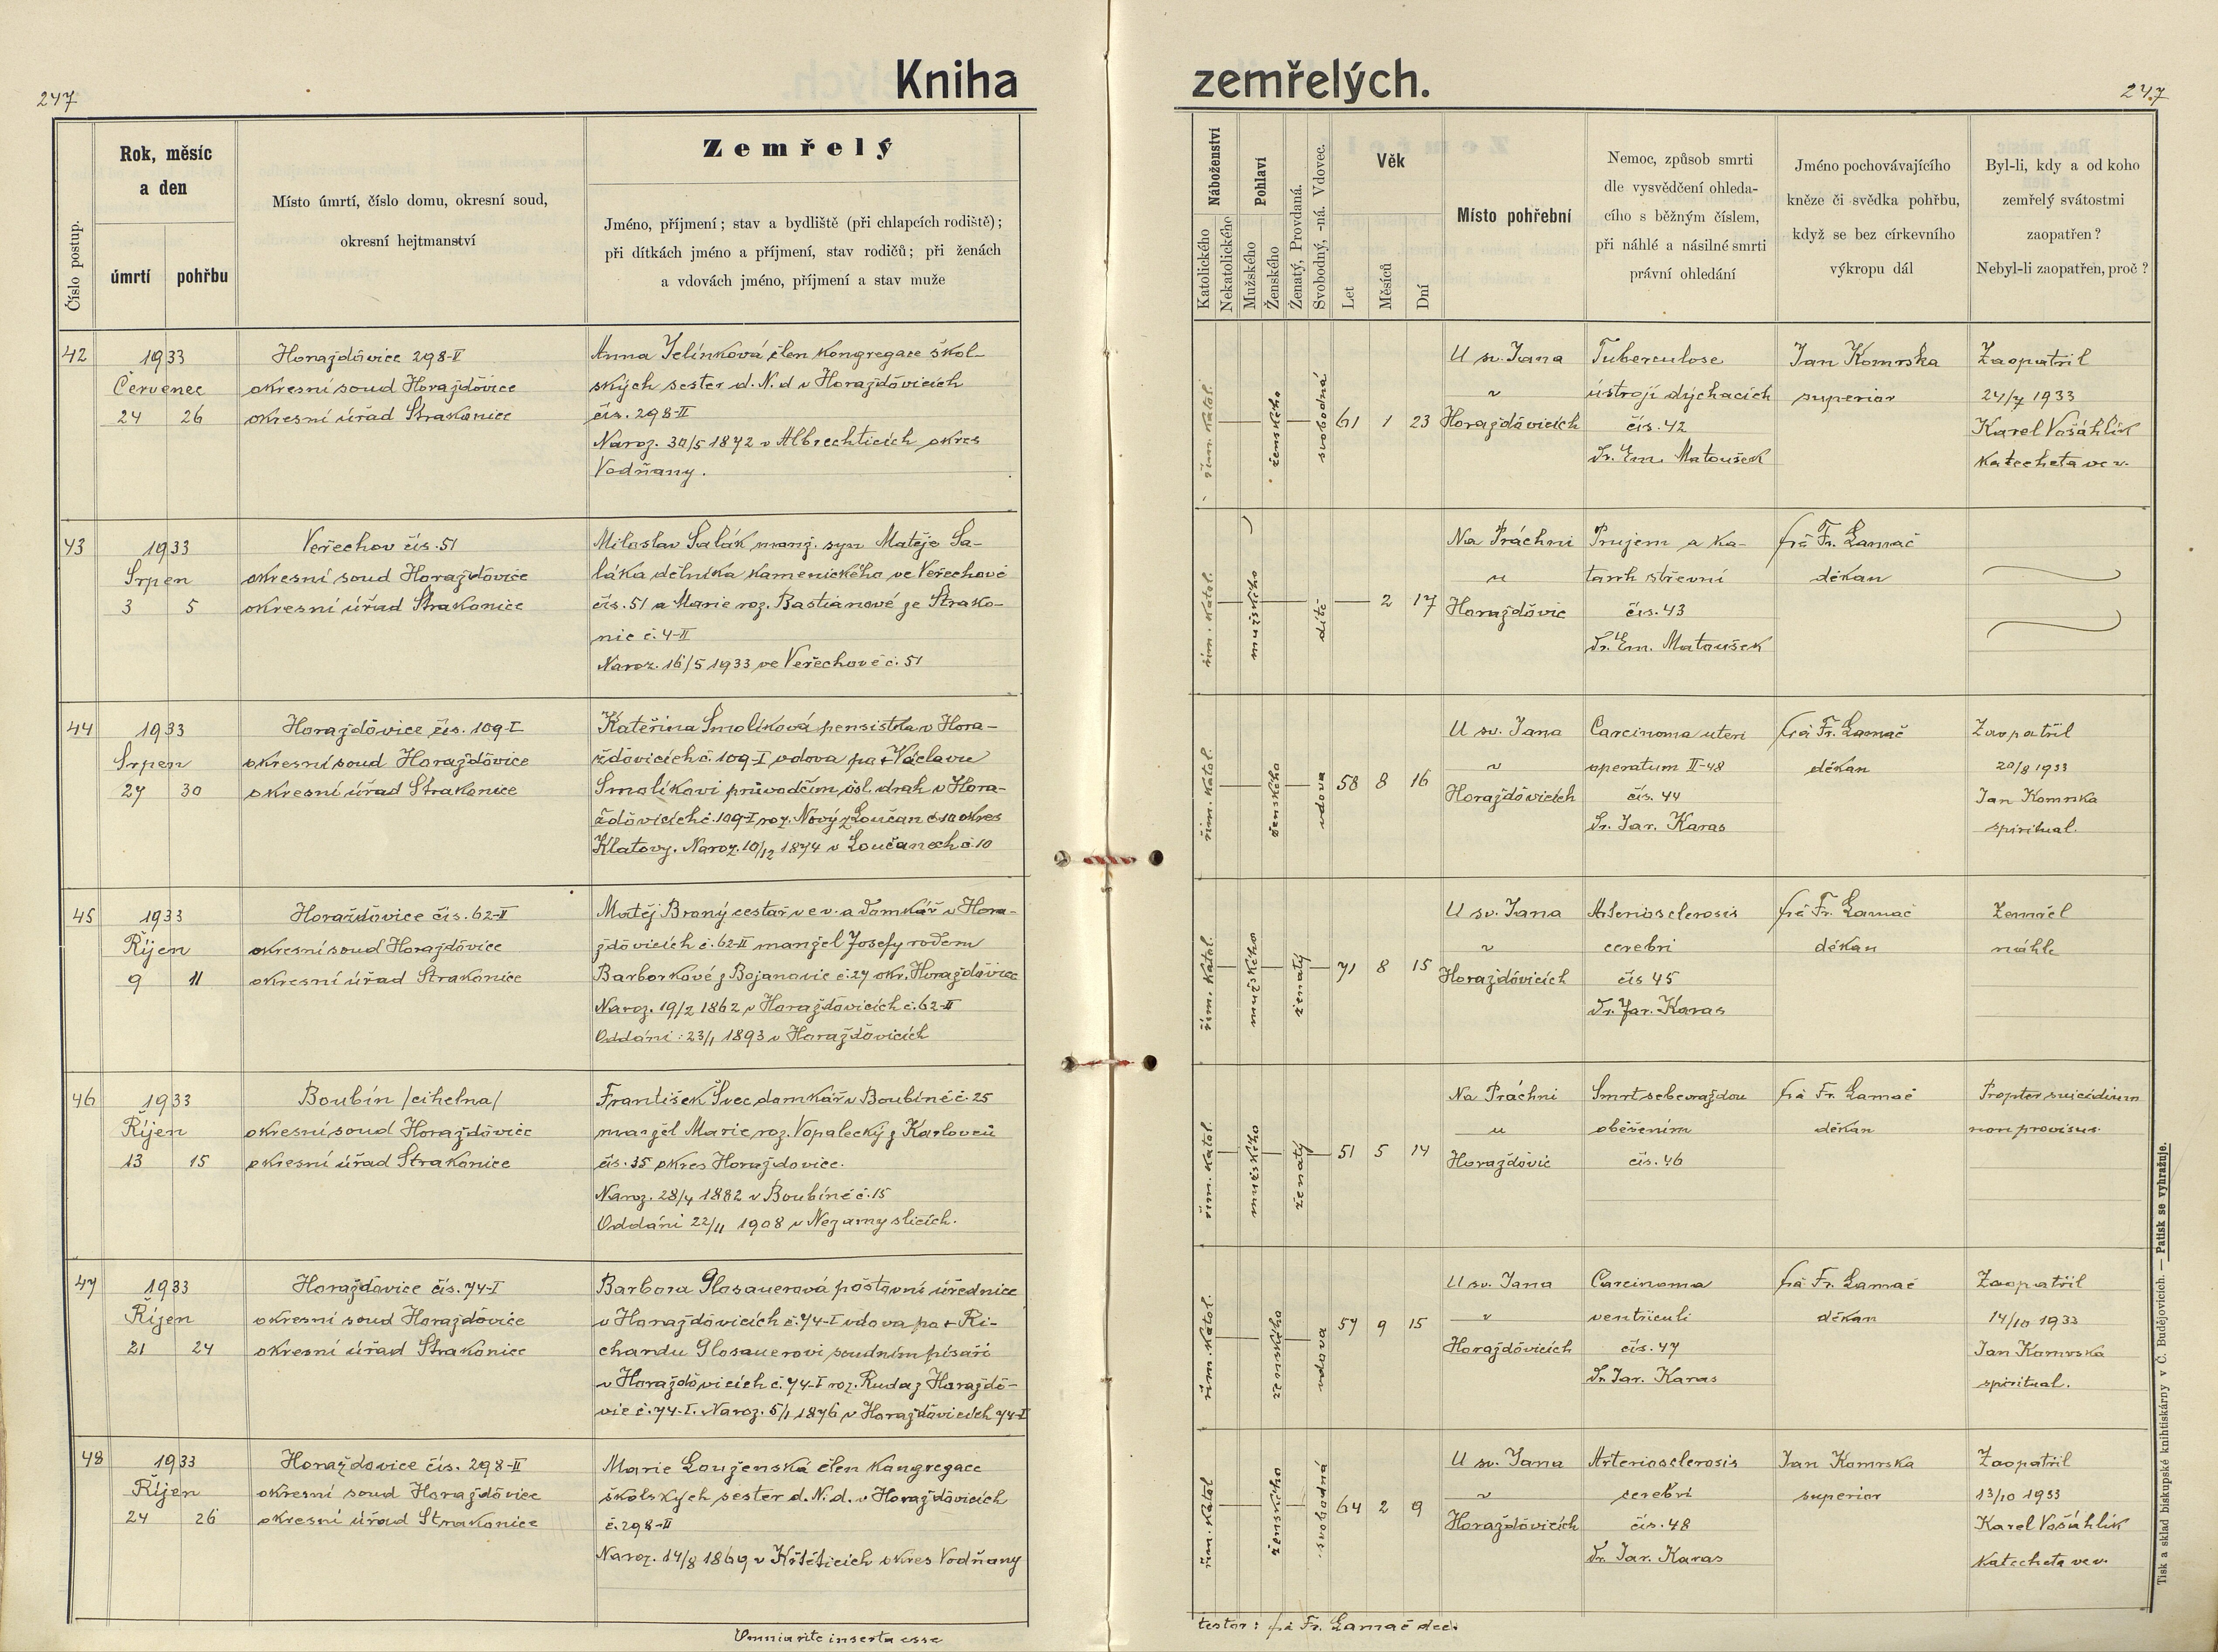 247
Kniha
zemřelých.
247
Číslo postup.
Rok, měsíc
a den
úmrtí
pohřbu
Místo úmrtí, číslo domu, okresní soud,
okresní hejtmanství
Zemřelý
Jméno, příjmení; stav a bydliště (při chlapcích rodiště);
při dítkách jméno a příjmení, stav rodičů; při ženách
a vdovách jméno, příjmení a stav muže
Náboženství
Katolického
Nekatolického
Pohlaví
Mužského
Ženského
Ženatý, Provdaná.
Svobodný, -ná. Vdovec.
Věk
Let
Měsíců
Dní
Místo pohřební
Nemoc, způsob smrti
dle vysvědčení ohleda-
cího s běžným číslem,
při náhlé a násilné smrti
právní ohledání
Jméno pochovávajícího
kněze či svědka pohřbu,
když se bez církevního
výkropu dál
Byl-li, kdy a od koho
zemřelý svátostmi
zaopatřen?
Nebyl-li zaopatřen, proč?
42
1933
Červenec
24 26
Horažďovice 298-II
okresní soud Horažďovice
okresní úřad Strakonice
Anna Jelínková člen kongregace škol-
ských sester d. N. d v Horažďovicích
čís. 298-II
Naroz. 30/5 1872 v Albrechticích okres
Vodňany.
řím. katol.
ženského
svobodná
61 1 23
U sv. Jana
v
Horažďovicích
Tuberculose
ústrojí dýchacích
čís. 42
Dr. Em. Matoušek
Jan Komrska
superior
Zaopatřil
24/7 1933
Karel Vošáhlík
katecheta ve v.
43
1933
Srpen
3 5
Veřechov čís. 51
okresní soud Horažďovice
okresní úřad Strakonice
Miloslav Salák manž. syn Matěje Sa-
láka dělníka kamenického ve Veřechově
čís. 51 a Marie roz. Bastianové ze Strako-
nic č. 4-II
Naroz. 16/5 1933 ve Veřechově č. 51
řím. katol.
mužského
dítě
2 17
Na Práchni
u
Horažďovic
Prujem a ka-
tarrh střevní
čís. 43
Dr. Em. Matoušek
Fr. Lamač
děkan
44
1933
Srpen
27 30
Horažďovice čís. 109-I
okresní soud Horažďovice
okresní úřad Strakonice
Kateřina Smolíková pensistka v Hora-
žďovicích č. 109-I vdova po + Václavu
Smolíkovi průvodčím čsl. drah v Hora-
žďovicích č. 109-I roz. Nový z Loučan č. 10 okres
Klatovy. Naroz. 10/12 1874 v Loučanech č. 10
řím. katol.
ženského
vdova
58 8 16
U sv. Jana
v
Horažďovicích
Carcinoma uteri
operatum II-48
čís. 44
Dr. Jar. Karas
Fr. Lamač
děkan
Zaopatřil
20/8 1933
Jan Komrska
spiritual.
45
1933
Říjen
9 11
Horažďovice čís. 62-II
okresní soud Horažďovice
okresní úřad Strakonice
Matěj Braný cestář ve v. a domkář v Hora-
žďovicích č. 62-II manžel Josefy rodem
Barborkové z Bojanovic č. 27 okr. Horažďovice
Naroz. 19/2 1862 v Horažďovicích č. 62-II
Oddáni: 23/1 1893 v Horažďovicích
řím. katol.
mužského
ženatý
71 8 15
U sv. Jana
v
Horažďovicích
Arteriosclerosis
cerebri
čís 45
Dr. Jar. Karas
Fr. Lamač
děkan
Zemřel
náhle
46
1933
Říjen
13 15
Boubín /cihelna/
okresní soud Horažďovice
okresní úřad Strakonice
František Švec domkář v Boubíně č. 25
manžel Marie roz. Vopalecký z Karlovců
čís. 35 okres Horažďovice.
Naroz. 28/4 1882 v Boubíně č. 15
Oddáni 22/11 1908 v Nezamyslicích.
řím. katol.
mužského
ženatý
51 5 14
Na Práchni
u
Horažďovic
Smrt sebevraždou
oběšením
čís. 46
Fr. Lamač
děkan
Propter suicidium
non provisus.
47
1933
Říjen
21 24
Horažďovice čís. 74-I
okresní soud Horažďovice
okresní úřad Strakonice
Barbora Glosauerová poštovní úřednice
v Horažďovicích č. 74-I vdova po + Ri-
chardu Glosauerovi soudním písaři
v Horažďovicích č. 74-I roz. Ruda z Horažďo-
vic č. 74-I. Naroz. 5/1 1876 v Horažďovicích 74-I
řím. katol.
ženského
vdova
57 9 15
U sv. Jana
v
Horažďovicích
Carcinoma
ventriculi
čís. 47
Dr. Jar. Karas
Fr. Lamač
děkan
Zaopatřil
14/10 1933
Jan Komrska
spiritual.
48
1933
Říjen
24 26
Horažďovice čís. 298-II
okresní soud Horažďovice
okresní úřad Strakonice
Marie Louženská člen kongregace
školských sester d. N. d. v Horažďovicích
č. 298-II
Naroz. 14/8 1869 v Krštěticích okres Vodňany
řím. katol
ženského
svobodná
64 2 9
U sv. Jana
v
Horažďovicích
Arteriosclerosis
cerebri
čís. 48
Dr. Jar. Karas
Jan Komrska
superior
Zaopatřil
13/10 1933
Karel Vošáhlík
katecheta ve v.
Omnia rite inserta esse
testor: Fr. Lamač
Tisk a sklad biskupské knihtiskárny v Č. Budějovicích. — Patisk se vyhražuje.